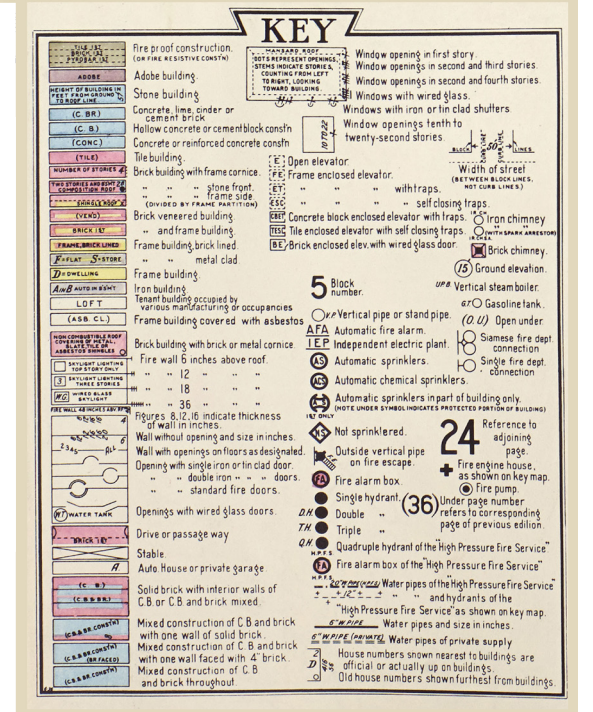 KEY
TILE 1ST
BRICK 1ST
PYROBAR 1ST
Fire proof construction.
(OR FIRE RESISTIVE CONST'N)
ADOBE
Adobe building.
HEIGHT OF BUILDING IN
FEET FROM GROUND
TO ROOF LINE
Stone building
(C. BR)
Concrete, lime, cinder or
cement brick
(C. B.)
Hollow concrete or cement block const'n
(CONC)
Concrete or reinforced concrete const'n
(TILE)
Tile building.
NUMBER OF STORIES 4
Brick building with frame cornice.
TWO STORIES AND BSMT 2B
COMPOSITION ROOF
" " " stone front.
SHINGLE ROOF X
" " " frame side
(DIVIDED BY FRAME PARTITION)
(VEN'D)
Brick veneered building.
BRICK 1ST
" and frame building.
FRAME, BRICK LINED
Frame building, brick lined.
F=FLAT S=STORE
" " metal clad.
D=DWELLING
Frame building.
A IN B AUTO IN BSM'T
Iron building.
LOFT
Tenant building occupied by
various manufacturing or occupancies
(ASB. CL.)
Frame building covered with asbestos
NON COMBUSTIBLE ROOF
COVERING OF METAL,
SLATE, TILE OR
ASBESTOS SHINGLES
Brick building with brick or metal cornice.
SKYLIGHT LIGHTING
TOP STORY ONLY
Fire wall 6 inches above roof.
3 SKYLIGHT LIGHTING
THREE STORIES
" " 12 " " "
W.G. WIRED GLASS
SKYLIGHT
" " 18 " " "
FIRE WALL 48 INCHES ABV
" " 36 " " "
Figures 8, 12, 16 indicate thickness
of wall in inches.
4
6
Wall without opening and size in inches.
2 3 4 5 ALL
Wall with openings on floors as designated.
Opening with single iron or tin clad door.
" " double iron " " " doors.
" " standard fire doors.
WT WATER TANK
Openings with wired glass doors.
BRICK 1ST
Drive or passage way
Stable.
A
Auto. House or private garage.
(C. B.)
(C.B.& BR.)
Solid brick with interior walls of
C.B. or C.B. and brick mixed.
(C.B.& BR. CONST'N)
Mixed construction of C.B. and brick
with one wall of solid brick.
(C.B.& BR. CONST'N)
(BR FACED)
Mixed construction of C.B. and brick
with one wall faced with 4" brick.
(C.B.& BR. CONST'N)
Mixed construction of C.B
and brick throughout.
MANSARD ROOF
DOTS REPRESENT OPENINGS,
STEMS INDICATE STORIES,
COUNTING FROM LEFT
TO RIGHT, LOOKING
TOWARD BUILDING.
Window opening in first story.
Window openings in second and third stories.
Window openings in second and fourth stories.
Windows with wired glass.
Windows with iron or tin clad shutters.
10 TO 22
Window openings tenth to
twenty-second stories
BLOCK 50 LINES
CURB LINE
CURB LINE
Width of street
(BETWEEN BLOCK LINES,
NOT CURB LINES.)
E Open elevator.
FE Frame enclosed elevator.
ET " " " with traps.
ESC " " " self closing traps.
CBET Concrete block enclosed elevator with traps.
TESC Tile enclosed elevator with self closing traps.
BE Brick enclosed elev. with wired glass door.
IR.CH. Iron chimney
IR.CH.S.A. (WITH SPARK ARRESTOR)
Brick chimney.
15 Ground elevation.
5 Block
number.
U.P.B. Vertical steam boiler.
G.T. Gasoline tank.
V.P Vertical pipe or stand pipe.
(O.U) Open under
AFA Automatic fire alarm.
IEP Independent electric plant.
Siamese fire dept.
connection
AS Automatic sprinklers.
Single fire dept.
connection
ACS Automatic chemical sprinklers.
A-S Automatic sprinklers in part of building only.
1ST ONLY (NOTE UNDER SYMBOL INDICATES PROTECTED PORTION OF BUILDING)
NS Not sprinklered.
24 Reference to
adjoining
page.
F.E. Outside vertical pipe
on fire escape.
Fire engine house,
as shown on key map.
FA Fire alarm box.
Fire pump.
Single hydrant.
D.H. Double "
T.H. Triple "
(36) Under page number
refers to corresponding
page of previous edition.
Q.H. Quadruple hydrant of the "High Pressure Fire Service"
H.P.F.S.
FA Fire alarm box of the "High Pressure Fire Service"
H.P.F.S.
20" W.PIPE (H.P.F.S.) Water pipes of the "High Pressure Fire Service"
+ + 12" + + " " and hydrants of the
+ "High Pressure Fire Service" as shown on key map.
6" W.PIPE Water pipes and size in inches.
6" W.PIPE (PRIVATE) Water pipes of private supply
2
D
House numbers shown nearest to buildings are
official or actually up on buildings.
Old house numbers shown furthest from buildings.